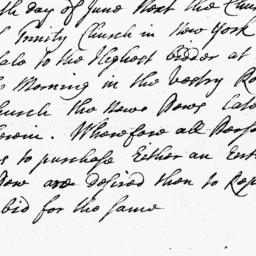 th Day of June Next the Chur
Trinity Church in New York
Sale to the Highest Bidder at
Morning in the vestry Ro
Church the News Pews Late
herein. Wherefore all Pers
to purchase Either an Ent
Pew are desired then to Rep
bid for the same